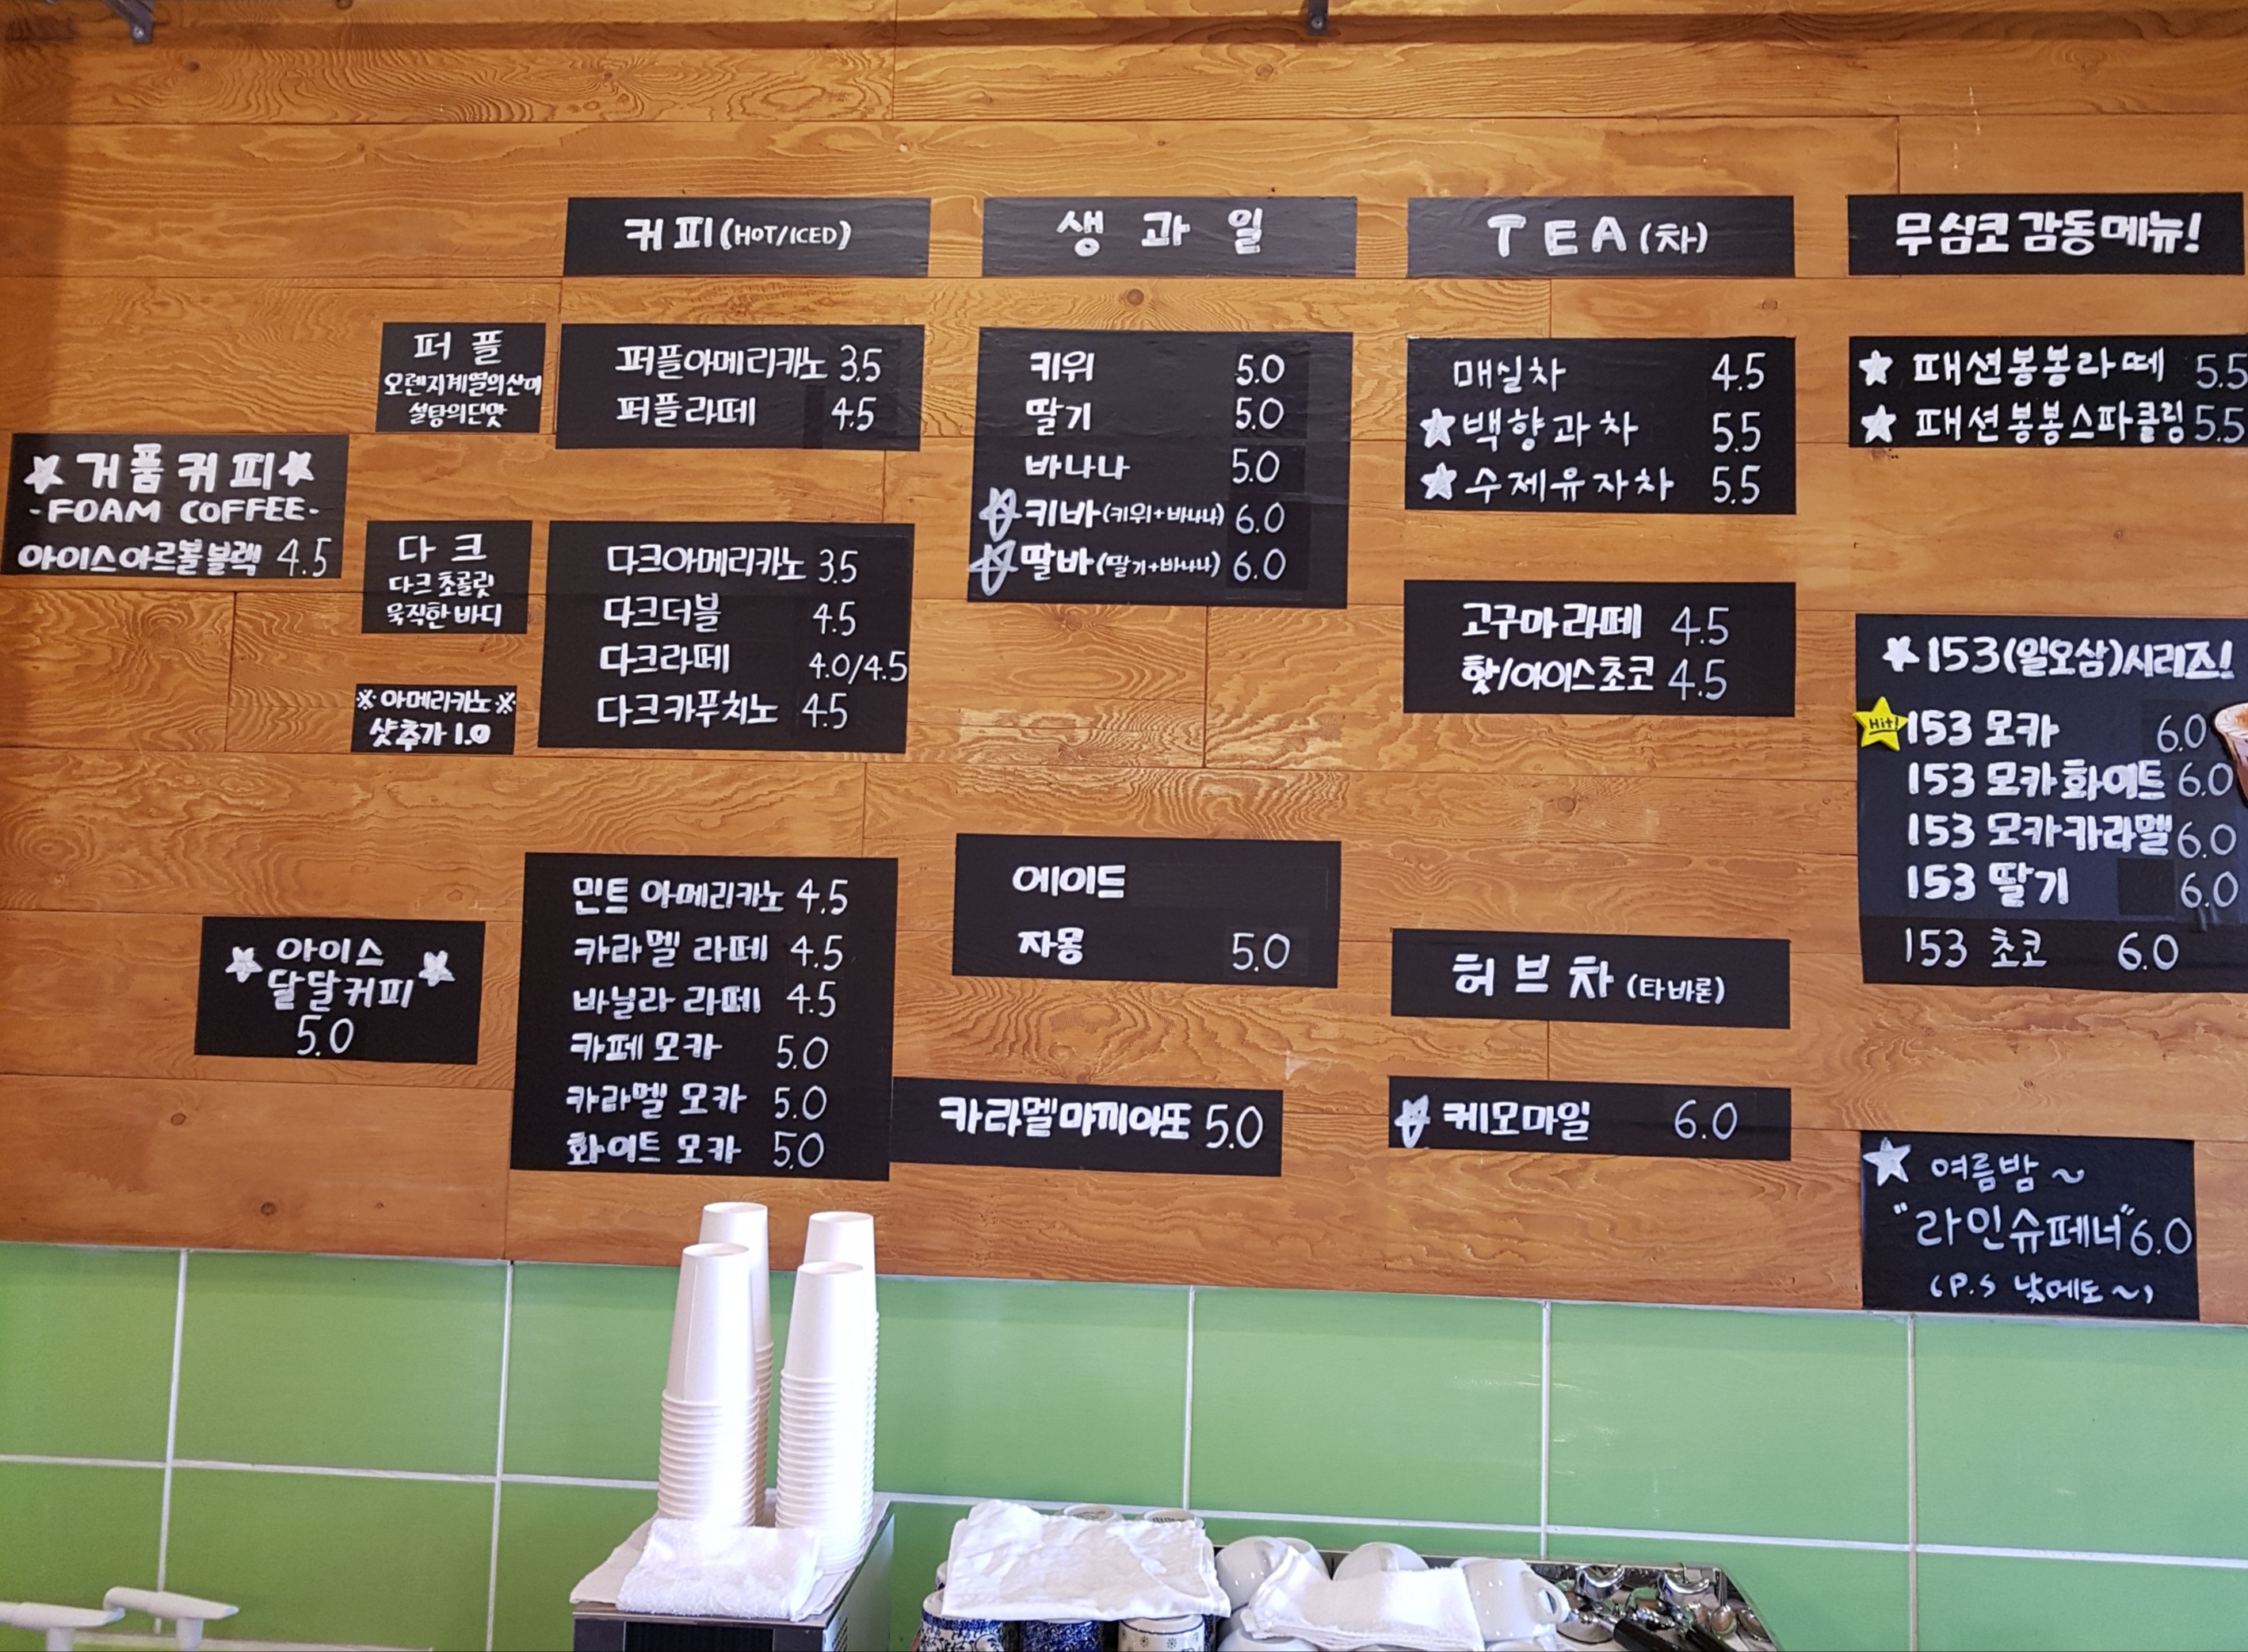 커피(HOT/ICED)
생과일
TEA(차)
무심코 감동메뉴!
퍼플
오렌지계열의산미
설탕의단맛
퍼플아메리카노 3.5
퍼플라떼 4.5
★거품커피★
-FOAM COFFEE-
아이스아르볼블랙 4.5
다크
다크초콜릿
묵직한바디
다크아메리카노 3.5
다크더블 4.5
다크라떼 4.0/4.5
다크카푸치노 4.5
※아메리카노※
샷추가 1.0
★ 아이스 ★
달달커피
5.0
민트 아메리카노 4.5
카라멜 라떼 4.5
바닐라 라떼 4.5
카페 모카 5.0
카라멜 모카 5.0
화이트 모카 5.0
키위 5.0
딸기 5.0
바나나 5.0
☆키바(키위+바나나) 6.0
☆딸바(딸기+바나나) 6.0
에이드
자몽 5.0
카라멜마끼아또 5.0
매실차 4.5
★백향과차 5.5
★수제유자차 5.5
고구마라떼 4.5
핫/아이스초코 4.5
허브차(타바론)
☆케모마일 6.0
★ 패션봉봉라떼 5.5
★ 패션봉봉스파클링 5.5
★153(일오삼)시리즈!
Hit! 153 모카 6.0
153 모카화이트 6.0
153 모카카라멜 6.0
153 딸기 6.0
153 초코 6.0
★ 여름밤~
"라인슈페너" 6.0
(P.S 낮에도~)